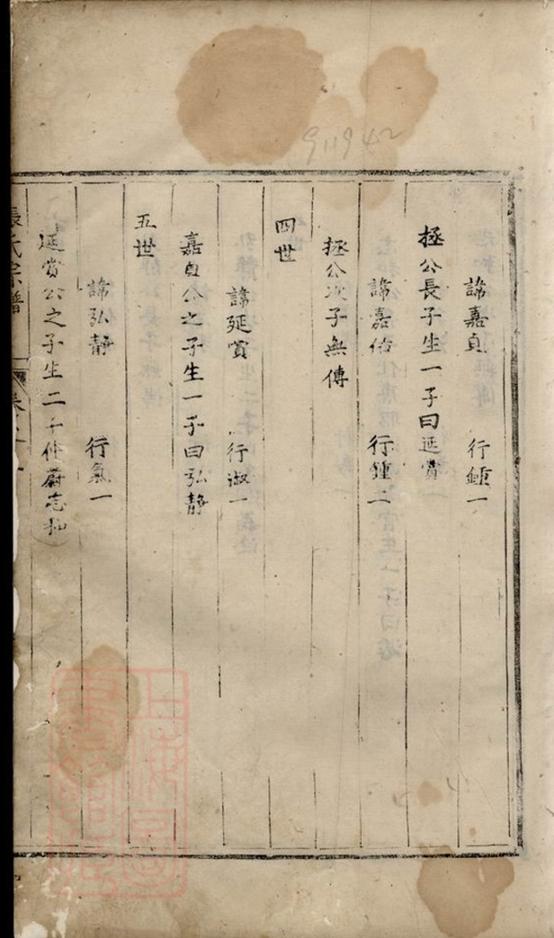 911942
諱嘉貞 行鍾一
拯公長子生一子曰延賞
諱嘉佑 行鍾二
拯公次子無傳
四世
諱延賞 行淑一
嘉貞公之子生一子曰弘靜
五世
諱弘靜 行氣一
延賞公之子生二子仲蔚志和
張氏宗譜 卷之一